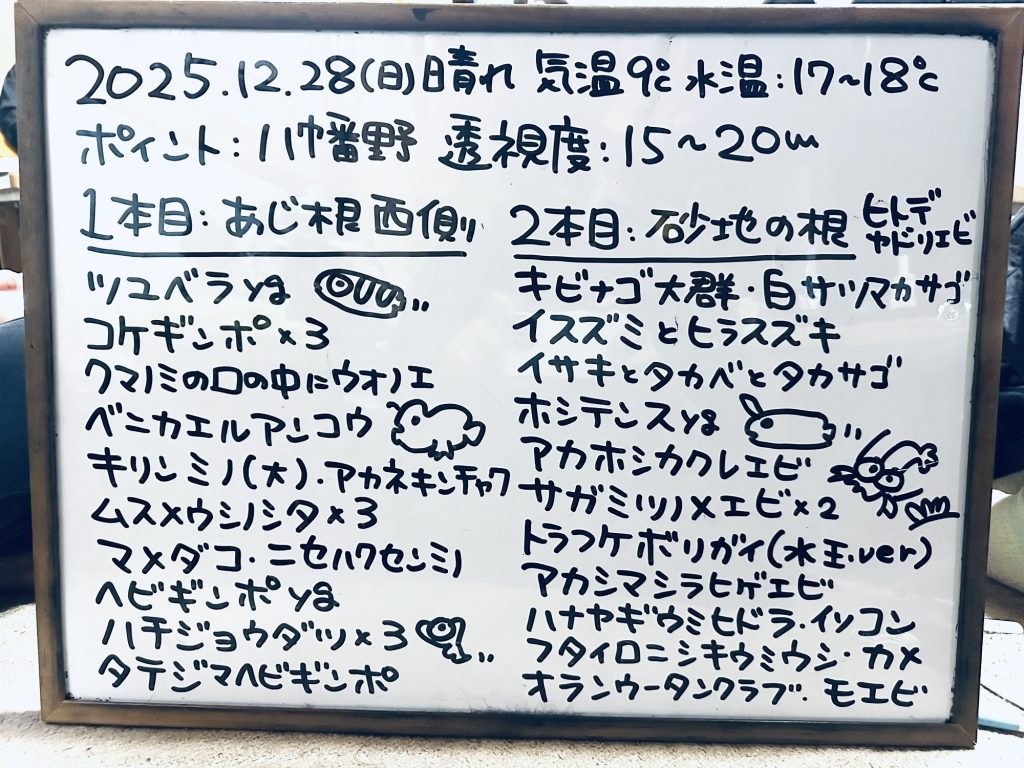 2025.12.28(日)晴れ 気温9℃ 水温:17~18℃
ポイント:八幡野 透視度:15~20m
1本目:あじ根西側
ツユベラyg
コケギンポ×3
クマノミの口の中にウオノエ
ベニカエルアンコウ
キリンミノ(大)・アカネキンチャク
ムスメウシノシタ×3
マメダコ・ニセハクセンミノ
ヘビギンポyg
ハチジョウダツ×3
タテジマヘビギンポ
2本目:砂地の根
ヒトデ
ヤドリエビ
キビナゴ大群・白サツマカサゴ
イスズミとヒラスズキ
イサキとタカベとタカサゴ
ホシテンスyg
アカホシカクレエビ
サガミツノメエビ×2
トラフケボリガイ(水玉.ver)
アカシマシラヒゲエビ
ハナヤギウミヒドラ・イソコン
フタイロニシキウミウシ・カメ
オランウータンクラブ・モエビ